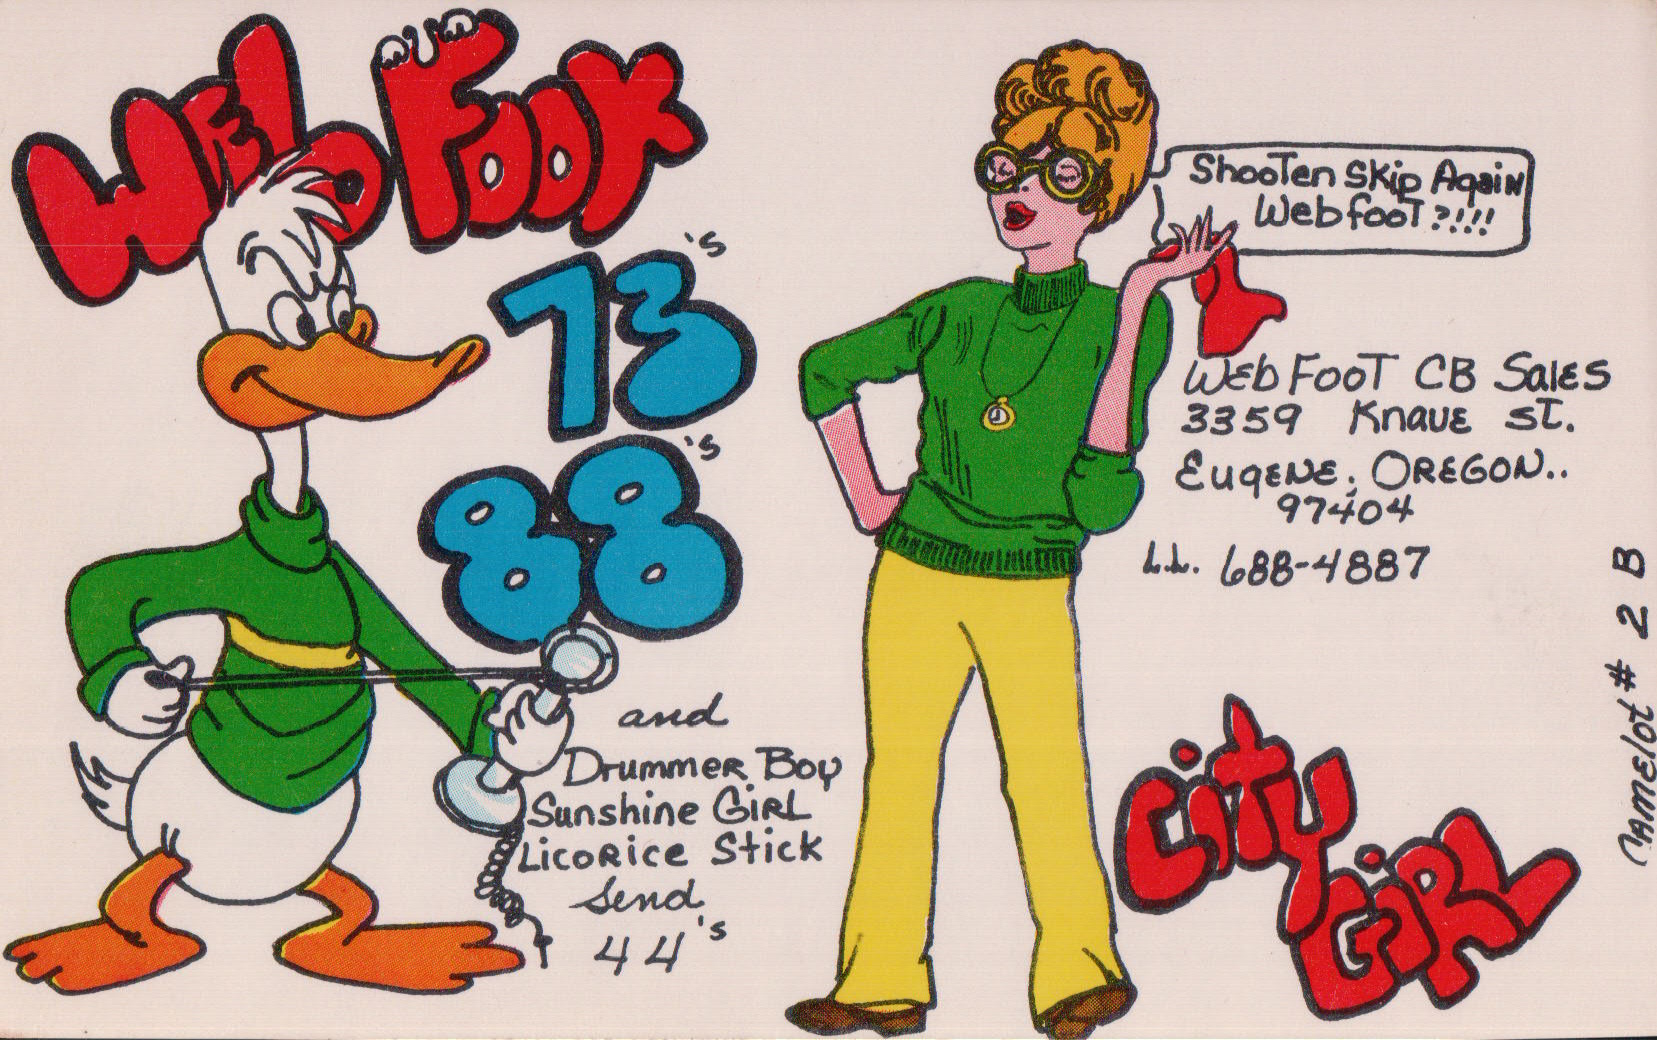 Web Foot
73's
88's
and
Drummer Boy
Sunshine Girl
Licorice Stick
Send
44's
Shooten Skip Again
Webfoot?!!!
Web Foot CB Sales
3359 Knave St.
Eugene, Oregon..
97404
L.L. 688-4887
City
Girl
Camelot # 2 B